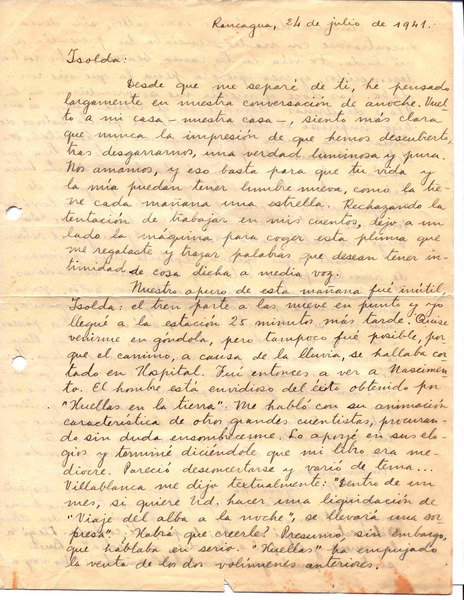 Rancagua, 24 de julio de 1941.
Isolda:
Desde que me separé de ti, he pensado
largamente en nuestra conversación de anoche. Vuel-
to a mi casa - nuestra casa -, siento más clara
que nunca la impresión de que hemos descubierto,
tras desgarrarnos, una verdad luminosa y pura.
Nos amamos, y eso basta para que tu vida y
la mía puedan tener lumbre nueva, como la tie-
ne cada mañana una estrella. Rechazando la
tentación de trabajar en mis cuentos, dejo a un
lado la máquina para coger esta pluma que
me regalaste y trazar palabras que desean tener in-
timidad de cosa dicha a media voz.
Nuestro apuro de esta mañana fué inútil,
Isolda: el tren parte a las nueve en punto y yo
llegué a la estación 25 minutos más tarde. Quise
venirme en góndola, pero tampoco fué posible, por
que el camino, a causa de la lluvia, se hallaba cor-
tado en Hospital. Fuí entonces a ver a Nascimen-
to. El hombre está envidioso del éxito obtenido por
"Huellas en la tierra". Me habló con su animación
característica de otros grandes cuentistas, procuran-
do sin duda ensombrecerme. Lo apoyé en sus elo-
gios y terminé diciéndole que mi libro era me-
diocre. Pareció desconcertarse y varió de tema...
Villablanca me dijo textualmente: "Dentro de un
mes, si quiere Ud. hacer una liquidación de
"Viaje del alba a la noche", se llevará una sor-
presa". ¿Habrá que creerle? Presumo, sin embargo,
que hablaba en serio. "Huellas" ha empujado
la venta de los dos volúmenes anteriores.